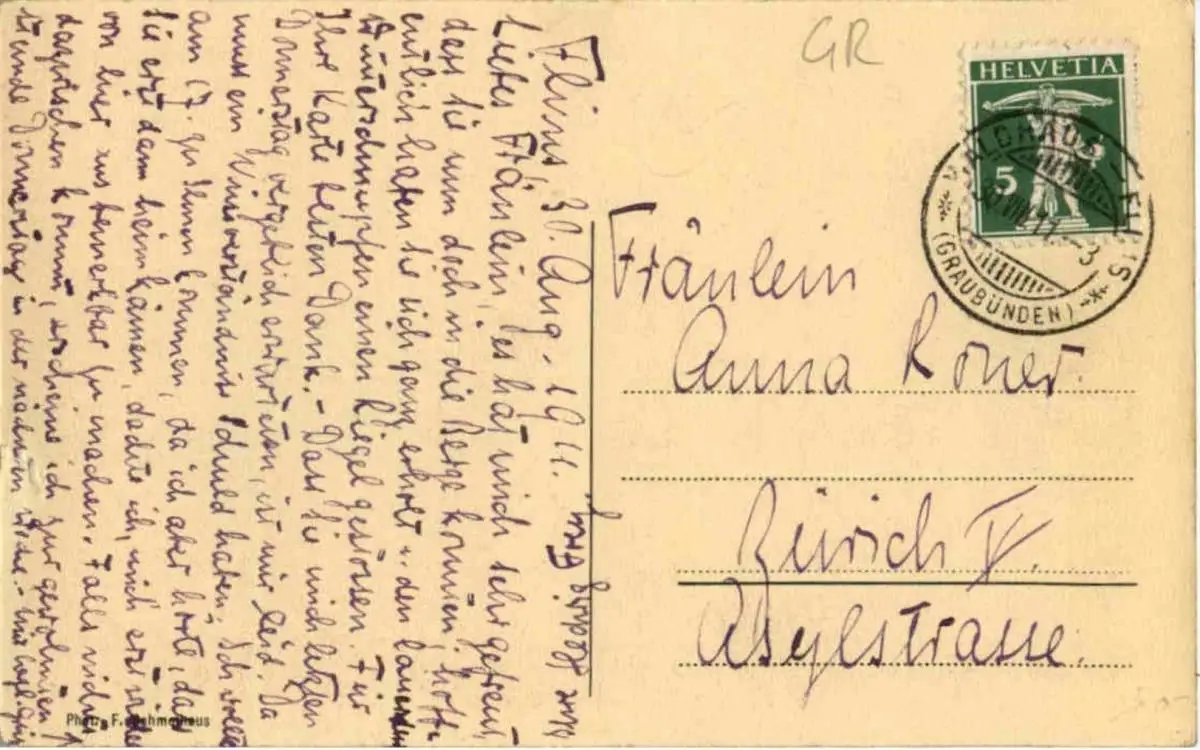 Flims, 30. Aug. 1911.
Liebes Fräulein, es hat mich sehr gefreut,
dass Sie nun doch in die Berge kommen, hoffentlich
haben Sie sich ganz erholt u. den
einen Riegel gestossen. Für
Ihre Karte besten Dank. – Dass Sie mich letzten
Donnerstag vergeblich erwarteten, ist mir leid. Da
muss ein Missverständnis Schuld haben. Ich wollte
am 17. zu Ihnen kommen, da ich aber hörte, dass
Sie erst dann heimkämen, dachte ich, mich erst wieder
von hier aus bemerkbar zu machen. Falls nichts
dazwischen kommt, erscheine ich zur gewohnten
Stunde Donnerstag in der nächsten Woche. –
Hedwig
GR
HELVETIA
5
WALDHAUS-FLIMS
VIII.11.-3
(GRAUBÜNDEN)
Fräulein
Anna Roner.
Zürich V.
Asylstrasse.
Phot. F.